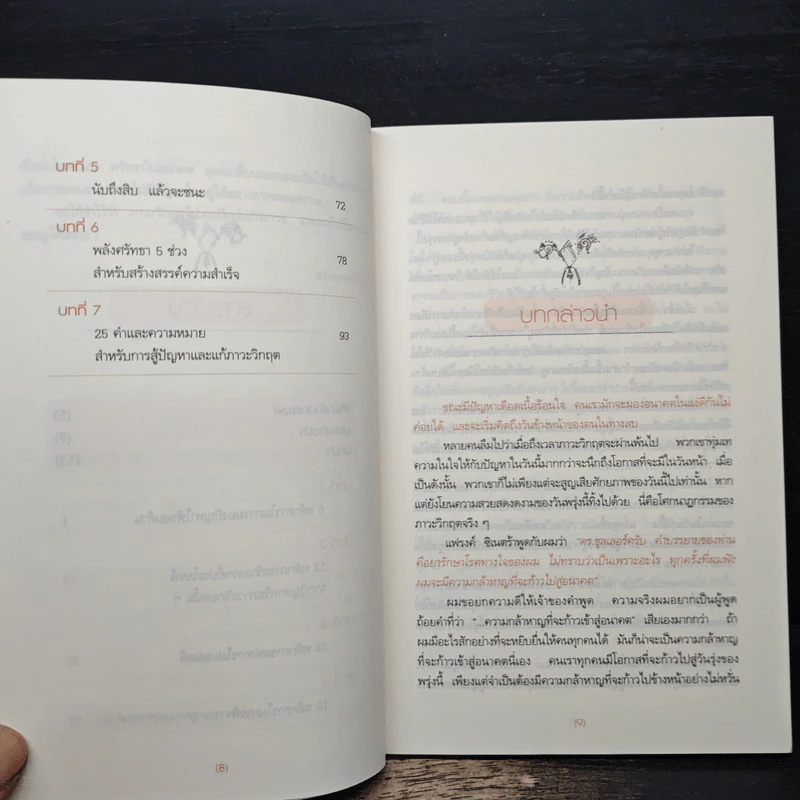 บทที่ 5
นับถึงสิบ แล้วจะชนะ 72
บทที่ 6
พลังศรัทธา 5 ช่วง 78
สำหรับสร้างสรรค์ความสำเร็จ
บทที่ 7
25 คำและความหมาย 93
สำหรับการสู้ปัญหาและแก้ภาวะวิกฤต
(8)
บทกล่าวนำ
ขณะมีปัญหาเดือดเนื้อร้อนใจ คนเรามักจะมองอนาคตในแง่ดีกันไม่
ค่อยได้ และจะเริ่มคิดถึงวันข้างหน้าของตนในทางลบ
หลายคนลืมไปว่าเมื่อถึงเวลาภาวะวิกฤตจะผ่านพ้นไป พวกเขาทุ่มเท
ความในใจให้กับปัญหาในวันนี้มากกว่าจะนึกถึงโอกาสที่จะมีในวันหน้า เมื่อ
เป็นดังนั้น พวกเขาก็ไม่เพียงแต่จะสูญเสียศักยภาพของวันนี้ไปเท่านั้น หาก
แต่ยังโยนความสวยสดงดงามของวันพรุ่งนี้ทิ้งไปด้วย นี่คือโศกนาฏกรรมของ
ภาวะวิกฤตจริง ๆ
แฟรงค์ ซิเนตร้าพูดกับผมว่า "ดร.ชุลเลอร์ครับ คำบรรยายของท่าน
คือยารักษาโรคทางใจของผม ไม่ทราบว่าเป็นเพราะอะไร ทุกครั้งที่ผมฟัง
ผมจะมีความกล้าหาญที่จะก้าวไปสู่อนาคต"
ผมขอยกความดีให้เจ้าของคำพูด ความจริงผมอยากเป็นผู้พูด
ถ้อยคำที่ว่า "...ความกล้าหาญที่จะก้าวเข้าสู่อนาคต" เสียเองมากกว่า ถ้า
ผมมีอะไรสักอย่างที่จะหยิบยื่นให้คนทุกคนได้ มันก็น่าจะเป็นความกล้าหาญ
ที่จะก้าวเข้าสู่อนาคตนี่เอง คนเราทุกคนมีโอกาสที่จะก้าวไปสู่วันรุ่งของ
พรุ่งนี้ เพียงแต่จำเป็นต้องมีความกล้าหาญที่จะก้าวไปข้างหน้าอย่างไม่หวั่น
(9)